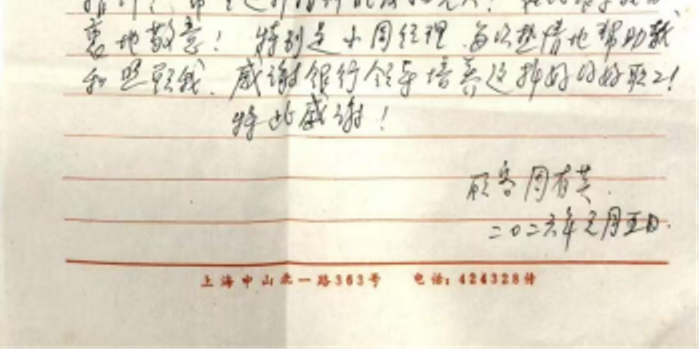 衷地敬意！特别是小周经理每次热情地帮助我
和照顾我。感谢银行领导培养这样好的好职工！
特此感谢！
顾客周有英.
二〇二六年元月五日.
上海中山北一路363号 电话：424328转